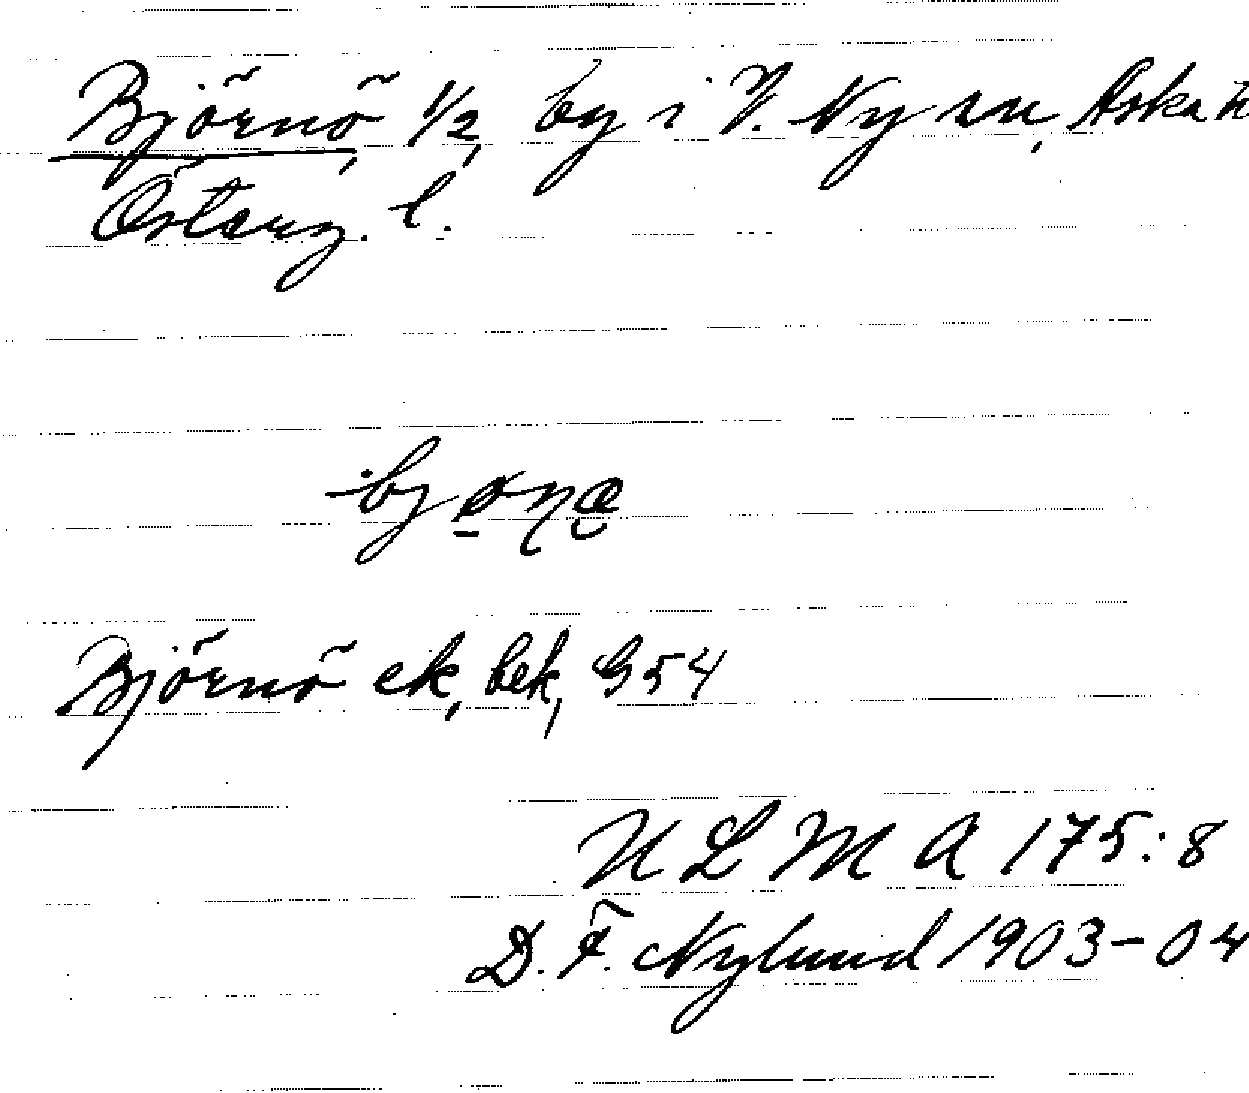 Björnö, 1/2, by i V. Ny sn, Aska h
Österg. l.
bjønœ
Björnö ek, bek, G54
ULMA 175:8
D. F. Nylund 1903-04